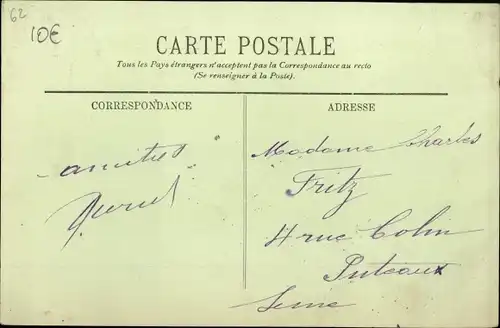 62
10€
CARTE POSTALE
Tous les Pays étrangers n'acceptent pas la Correspondance au recto
(Se renseigner à la Poste).
CORRESPONDANCE
amitiés
ADRESSE
Madame Charles
Fritz
4 rue Colin
Puteaux
Seine